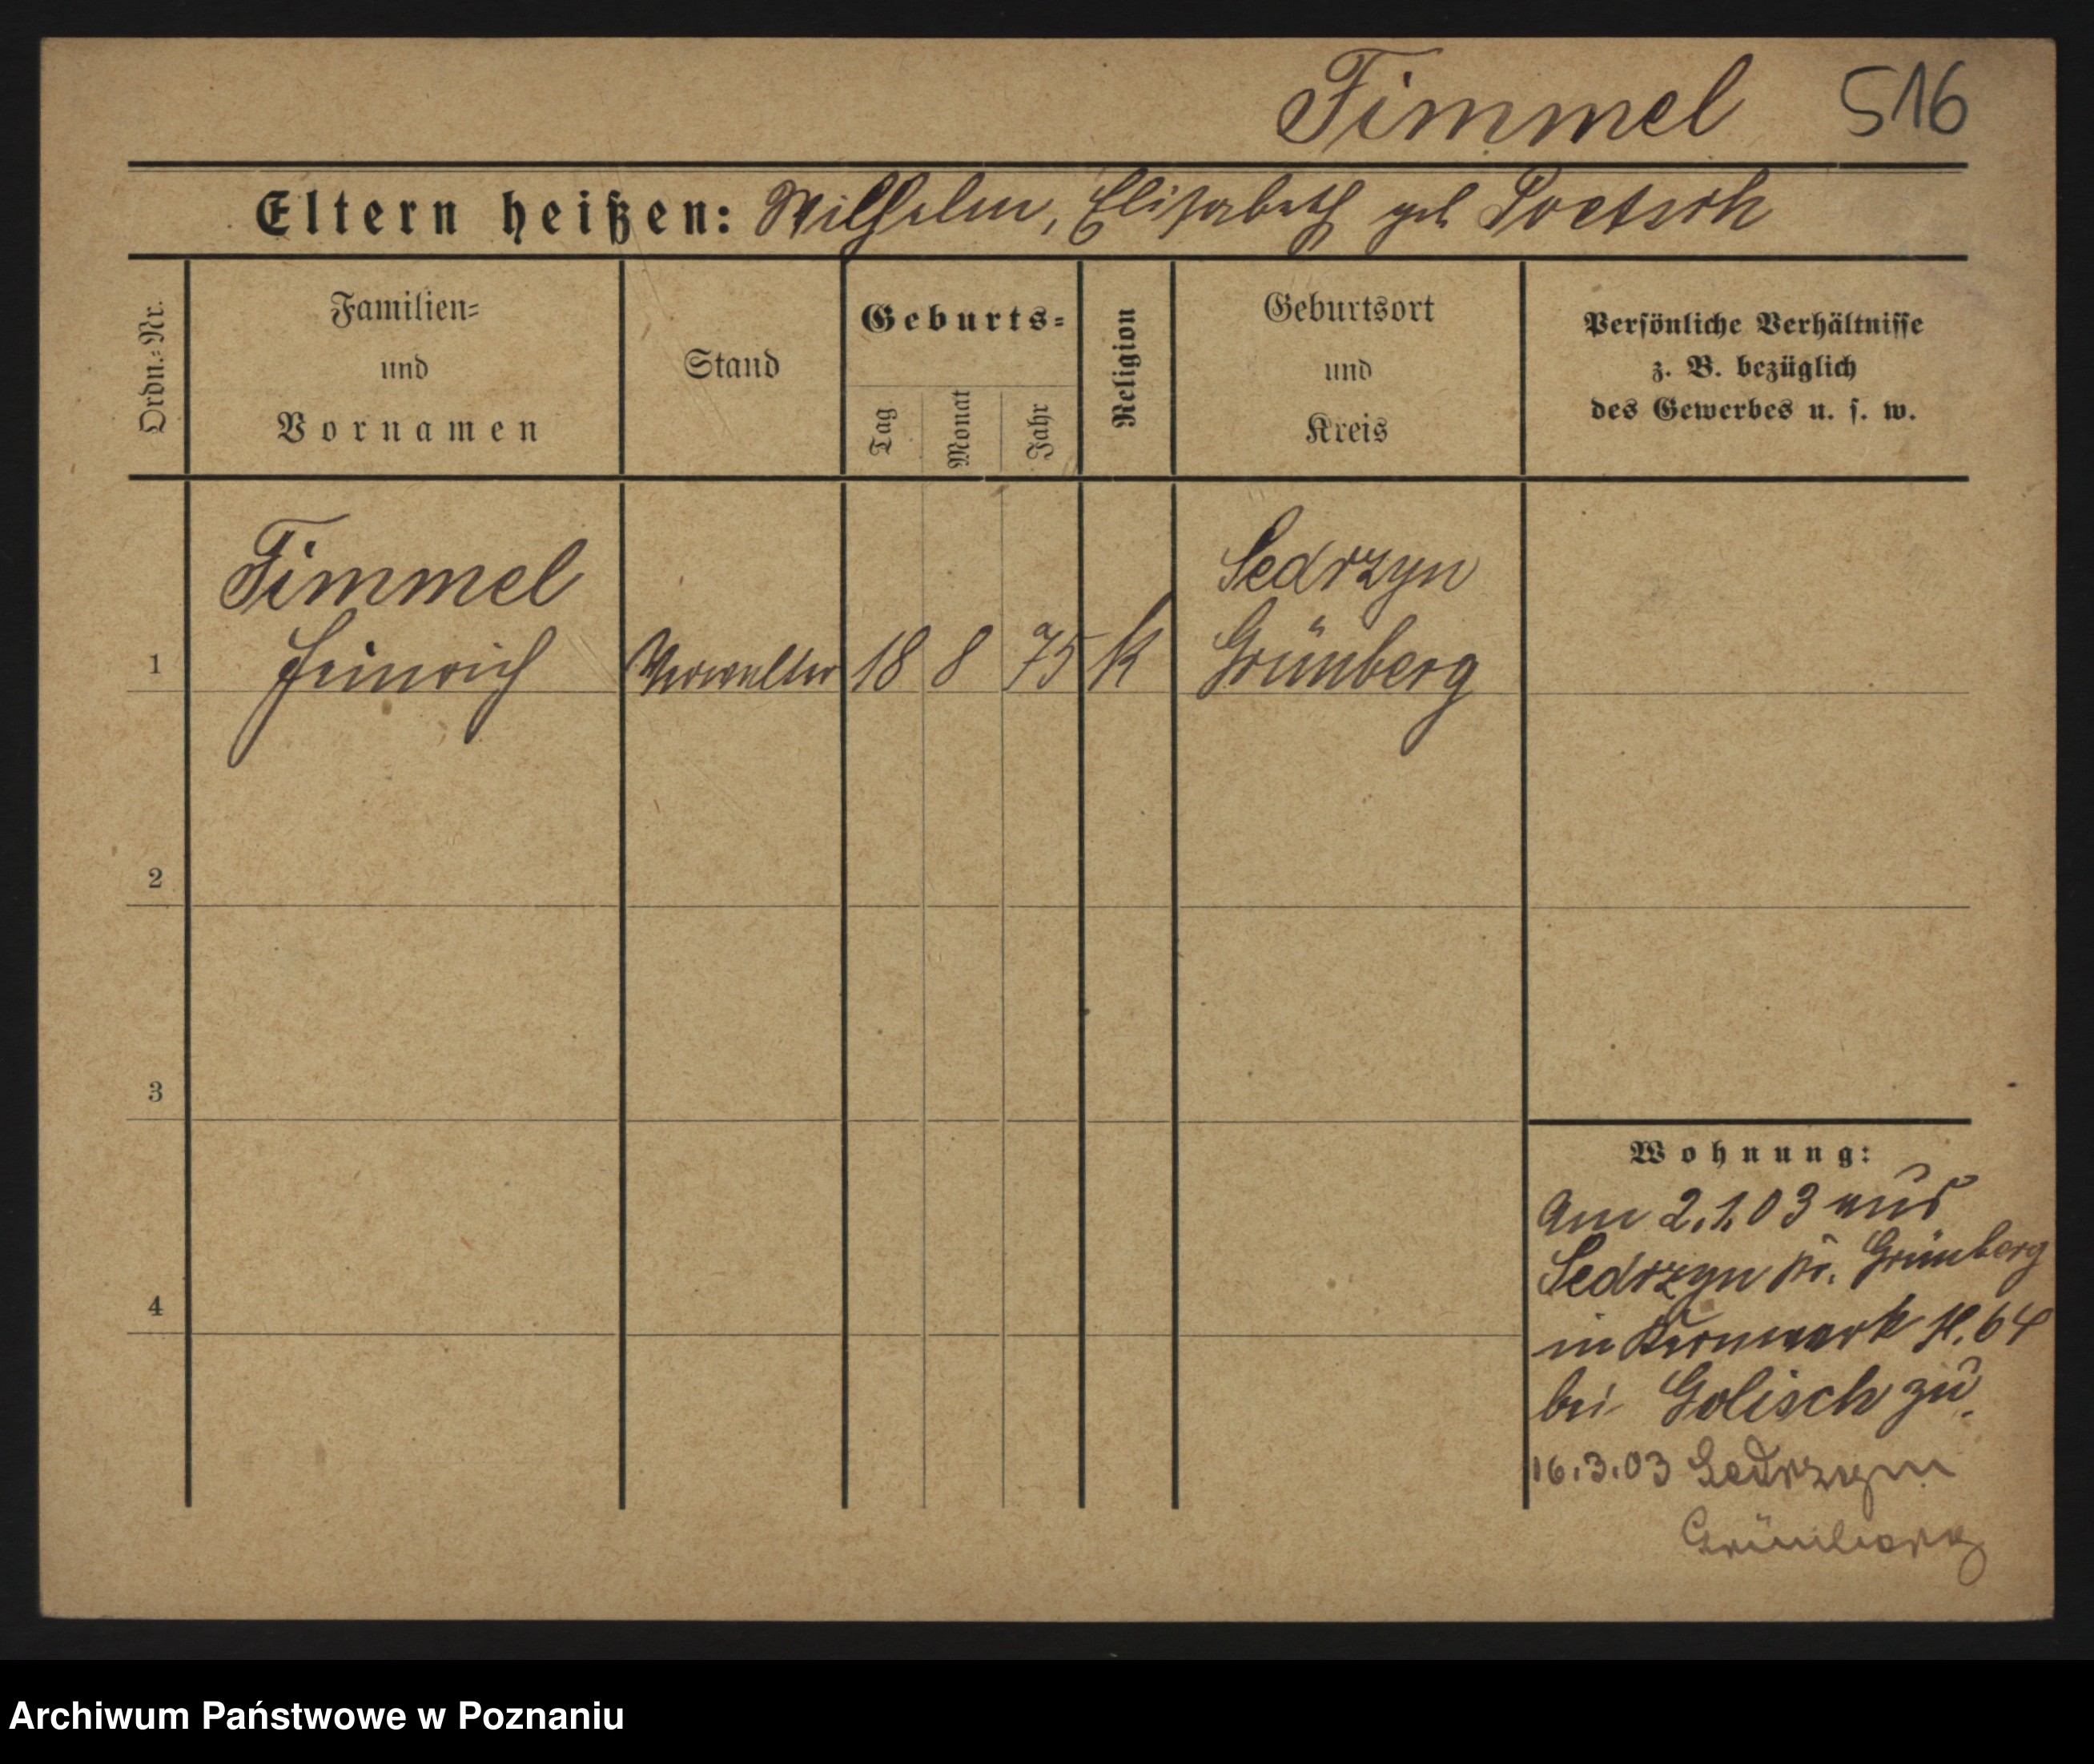 Fimmel 516
Eltern heißen: Wilhelm, Elisabeth geb Poetsch
Ordn.=Nr.
Familien=
und
Vornamen
Stand
Geburts=
Tag
Monat
Jahr
Religion
Geburtsort
und
Kreis
Persönliche Verhältnisse
z. B. bezüglich
des Gewerbes u. s. w.
Fimmel Sedrzyn
1 Heinrich Verwalter 18 8 75 K Grünberg
2
3
4
Wohnung:
Am 2.1.03 aus
Sedrzyn Kr. Grünberg
in Kernwerk H. 64
bei Golisch zu.
16.3.03 Sedrzyn
Grünberg
Archiwum Państwowe w Poznaniu